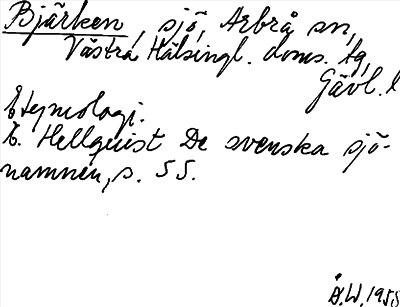 Bjärken, sjö, Arbrå sn,
Västra Hälsingl. doms. tg,
Gävl. l
Etymologi.
E. Hellquist De svenska sjö-
namnen, s. 55.
Å.W. 1958